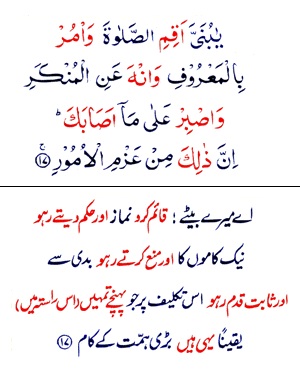 يٰبُنَيَّ اَقِمِ الصَّلٰوةَ وَاْمُرْ
بِالْمَعْرُوْفِ وَانْهَ عَنِ الْمُنْكَرِ
وَاصْبِرْ عَلٰى مَاۤ اَصَابَكَ ؕ
اِنَّ ذٰلِكَ مِنْ عَزْمِ الْاُمُوْرِ ۚ ﴿۱۷﴾
اے میرے بیٹے ! قائم کرو نماز اور حکم دیتے رہو
نیک کاموں کا اور منع کرتے رہو بدی سے
اور ثابت قدم رہو اس تکلیف پر جو پہنچے تمہیں (اس راستہ میں)
یقیناً یہی ہیں بڑی ہمّت کے کام ﴿۱۷﴾